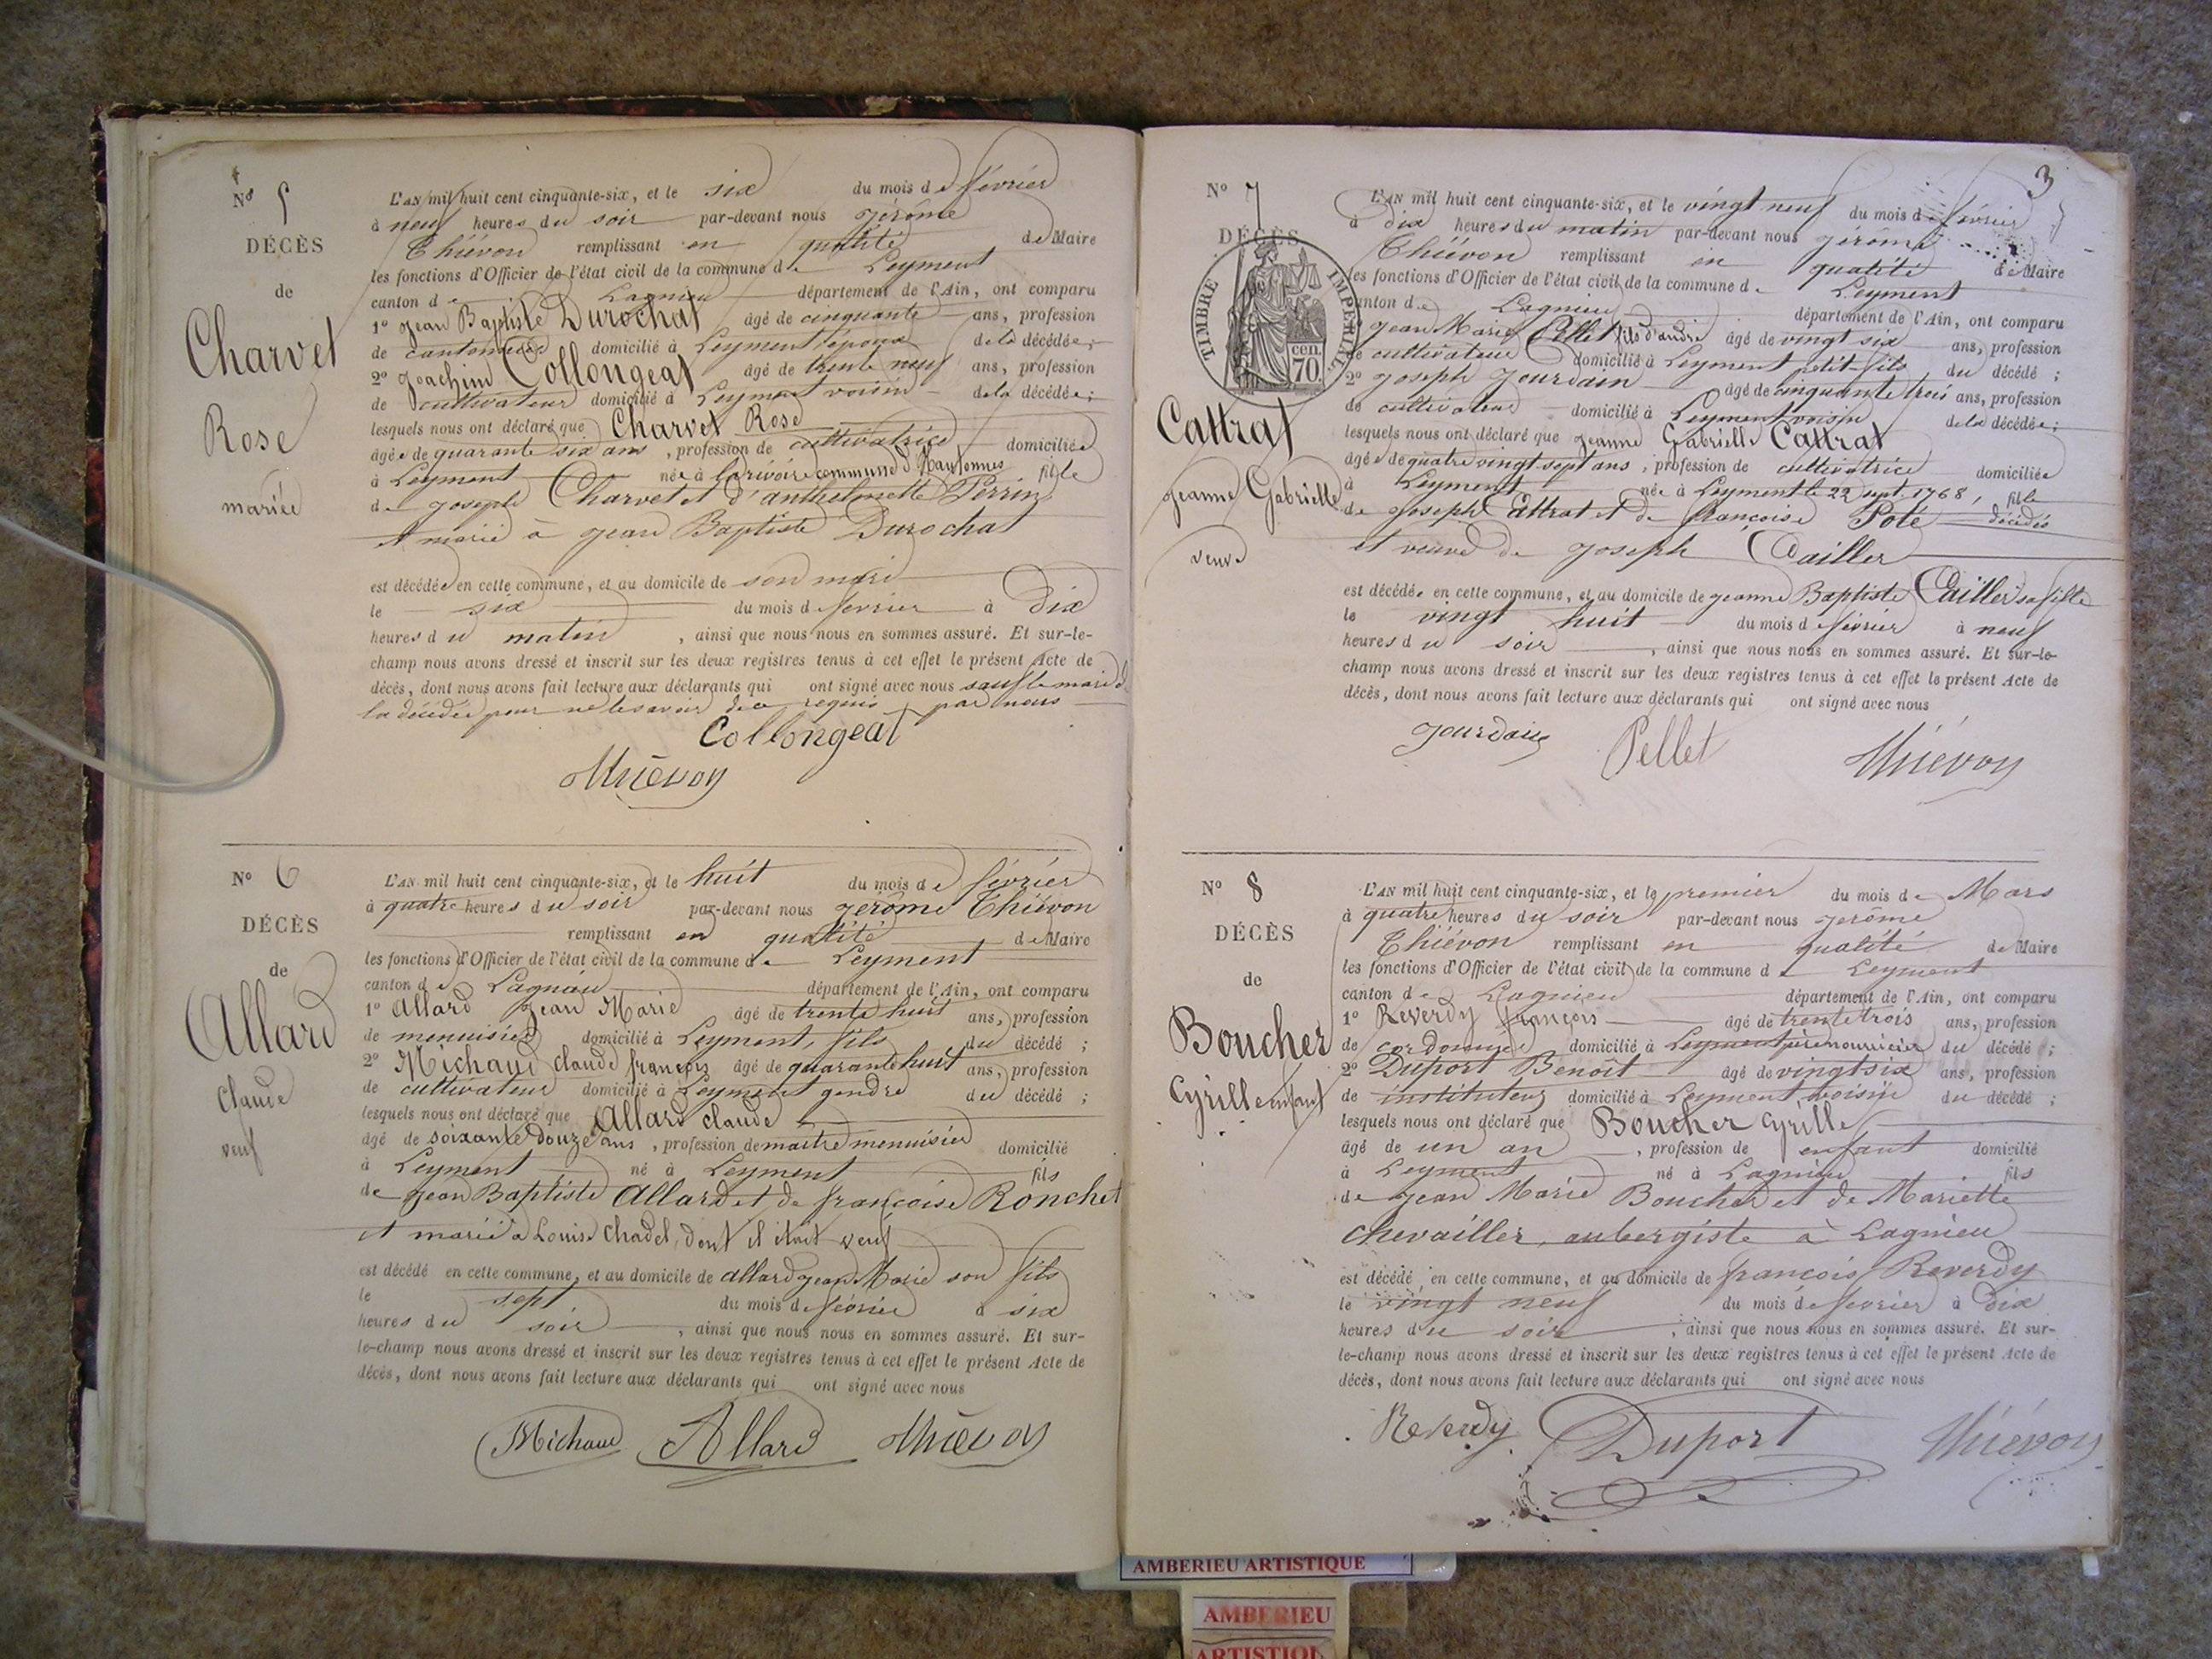 Nº 5
DÉCÈS
de
Charvet
Rose
mariée
L'AN mil huit cent cinquante-six, et le six du mois de février
à neuf heures du soir par-devant nous Jérôme
Thiévon remplissant en qualité de Maire
les fonctions d'Officier de l'état civil de la commune de Leyment
canton de Lagnieu département de l'Ain, ont comparu
1º Jean Baptiste Durochat âgé de cinquante ans, profession
de cantonnier domicilié à Leyment époux de la décédée;
2º Joachim Collongeat âgé de trente neuf ans, profession
de cultivateur domicilié à Leyment voisin de la décédée;
lesquels nous ont déclaré que Charvet Rose
âgée de quarante six ans, profession de cultivatrice domiciliée
à Leyment née à larivoire commune d'hautonnes fille
de joseph Charvet et d'anthelmette Perrin
et marié à jean Baptiste Durochat
est décédée en cette commune, et au domicile de son mari
le six du mois de fevrier à dix
heures du matin, ainsi que nous nous en sommes assuré. Et sur-le-
champ nous avons dressé et inscrit sur les deux registres tenus à cet effet le présent Acte de
décès, dont nous avons fait lecture aux déclarants qui ont signé avec nous sauf le mari de
la décédée pour ne le savoir de ce requis par nous
Collongeat
Thiévon
Nº 6
DÉCÈS
de
Allard
Claude
veuf
L'AN mil huit cent cinquante-six, et le huit du mois de février
à quatre heures du soir par-devant nous jérôme Thiévon
remplissant en qualité de Maire
les fonctions d'Officier de l'état civil de la commune de Leyment
canton de Lagnieu département de l'Ain, ont comparu
1º Allard Jean Marie âgé de trente huit ans, profession
de menuisier domicilié à Leyment, fils du décédé;
2º Michaud claude françois âgé de quarante huit ans, profession
de cultivateur domicilié à Leyment gendre du décédé;
lesquels nous ont déclaré que Allard claude
âgé de soixante douze ans, profession de maitre menuisier domicilié
à Leyment né à Leyment fils
de jean Baptiste Allard et de françoise Ronchet
et marié à Louise Chadel, dont il était veuf
est décédé en cette commune, et au domicile de allard jean Marie son fils
le sept du mois de février à six
heures du soir, ainsi que nous nous en sommes assuré. Et sur-
le-champ nous avons dressé et inscrit sur les deux registres tenus à cet effet le présent Acte de
décès, dont nous avons fait lecture aux déclarants qui ont signé avec nous
Michaud Allard Thiévon
3
Nº 7
DÉCÈS
TIMBRE IMPÉRIAL
cen. 70.
Cattrat
jeanne Gabrielle
veuve
L'AN mil huit cent cinquante-six, et le vingt neuf du mois de février
à dix heures du matin par-devant nous jérôme
Thiévon remplissant en qualité de Maire
les fonctions d'Officier de l'état civil de la commune de Leyment
canton de Lagnieu département de l'Ain, ont comparu
jean Marie Pellet fils d'andré âgé de vingt six ans, profession
de cultivateur domicilié à Leyment petit-fils du décédé;
2º joseph jourdain âgé de cinquante trois ans, profession
de cultivateur domicilié à Leyment voisin de la décédée;
lesquels nous ont déclaré que jeanne Gabrielle Cattrat
âgée de quatre vingt sept ans, profession de cultivatrice domiciliée
à Leyment née à Leyment le 22 sept. 1768, fille
de joseph Cattrat et de françoise Poté décédés
et veuve de joseph Cailler
est décédée en cette commune, et au domicile de jeanne Baptiste Cailler sa fille
le vingt huit du mois de février à neuf
heures du soir, ainsi que nous nous en sommes assuré. Et sur-le-
champ nous avons dressé et inscrit sur les deux registres tenus à cet effet le présent Acte de
décès, dont nous avons fait lecture aux déclarants qui ont signé avec nous
jourdain Pellet Thiévon
Nº 8
DÉCÈS
de
Boucher
Cyrille enfant
L'AN mil huit cent cinquante-six, et le premier du mois de Mars
à quatre heures du soir par-devant nous jerôme
Thiévon remplissant en qualité de Maire
les fonctions d'Officier de l'état civil de la commune de Leyment
canton de Lagnieu département de l'Ain, ont comparu
1º Reverdy françois âgé de trente trois ans, profession
de cordonnier domicilié à Leyment père nourricier du décédé;
2º Duport Benoit âgé de vingt six ans, profession
de instituteur domicilié à Leyment voisin du décédé;
lesquels nous ont déclaré que Boucher Cyrille
âgé de un an, profession de enfant domicilié
à Leyment né à Lagnieu fils
de jean Marie Boucher et de Mariette
chevailler, aubergiste à Lagnieu
est décédé en cette commune, et au domicile de françois Reverdy
le vingt neuf du mois de fevrier à dix
heures du soir, ainsi que nous nous en sommes assuré. Et sur-
le-champ nous avons dressé et inscrit sur les deux registres tenus à cet effet le présent Acte de
décès, dont nous avons fait lecture aux déclarants qui ont signé avec nous
Reverdy Duport Thiévon
AMBERIEU ARTISTIQUE
AMBERIEU
ARTISTIQU